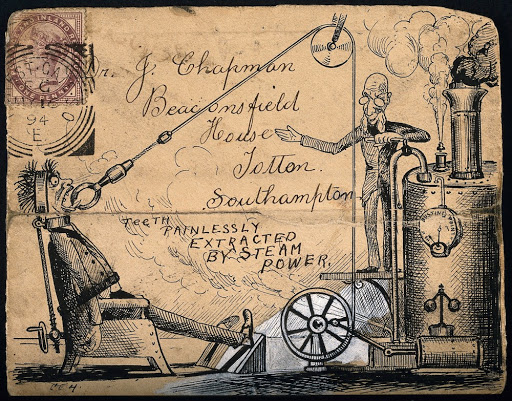 Dr. J. Chapman
Beaconsfield
House
Totton.
Southampton.
TEETH
PAINLESSLY
EXTRACTED
BY STEAM
POWER,
BURSTING POINT
94
E